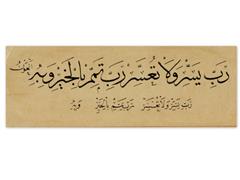 رَبِّ يَسِّرْ وَلَا تُعَسِّرْ رَبِّ تَمِّمْ بِالْخَيْرِ وَبِهِ
رَبِّ يَسِّرْ وَلَا تُعَسِّرْ رَبِّ تَمِّمْ بِالْخَيْرِ